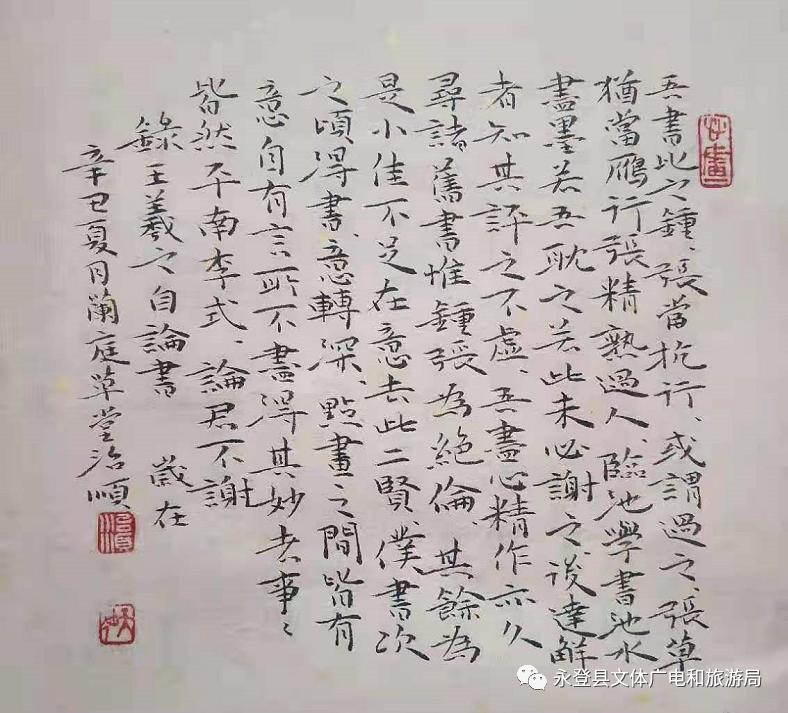 吾書比之鍾、張當抗行、或謂過之、張草
猶當鴈行張精熟過人、臨池學書池水
盡墨若吾耽之若此未必謝之後達解
者知其評之不虛、吾盡心精作亦久
尋諸舊書惟鍾張為絕倫、其餘為
是小佳不足在意去此二賢、僕書次
之頃得書、意轉深、點畫之間皆有
意自有言所不盡得其妙者事〻
皆然平南李式、論君不謝
錄王羲之自論書 歲在
辛丑夏月蘭庭草堂治順
永登县文体广电和旅游局